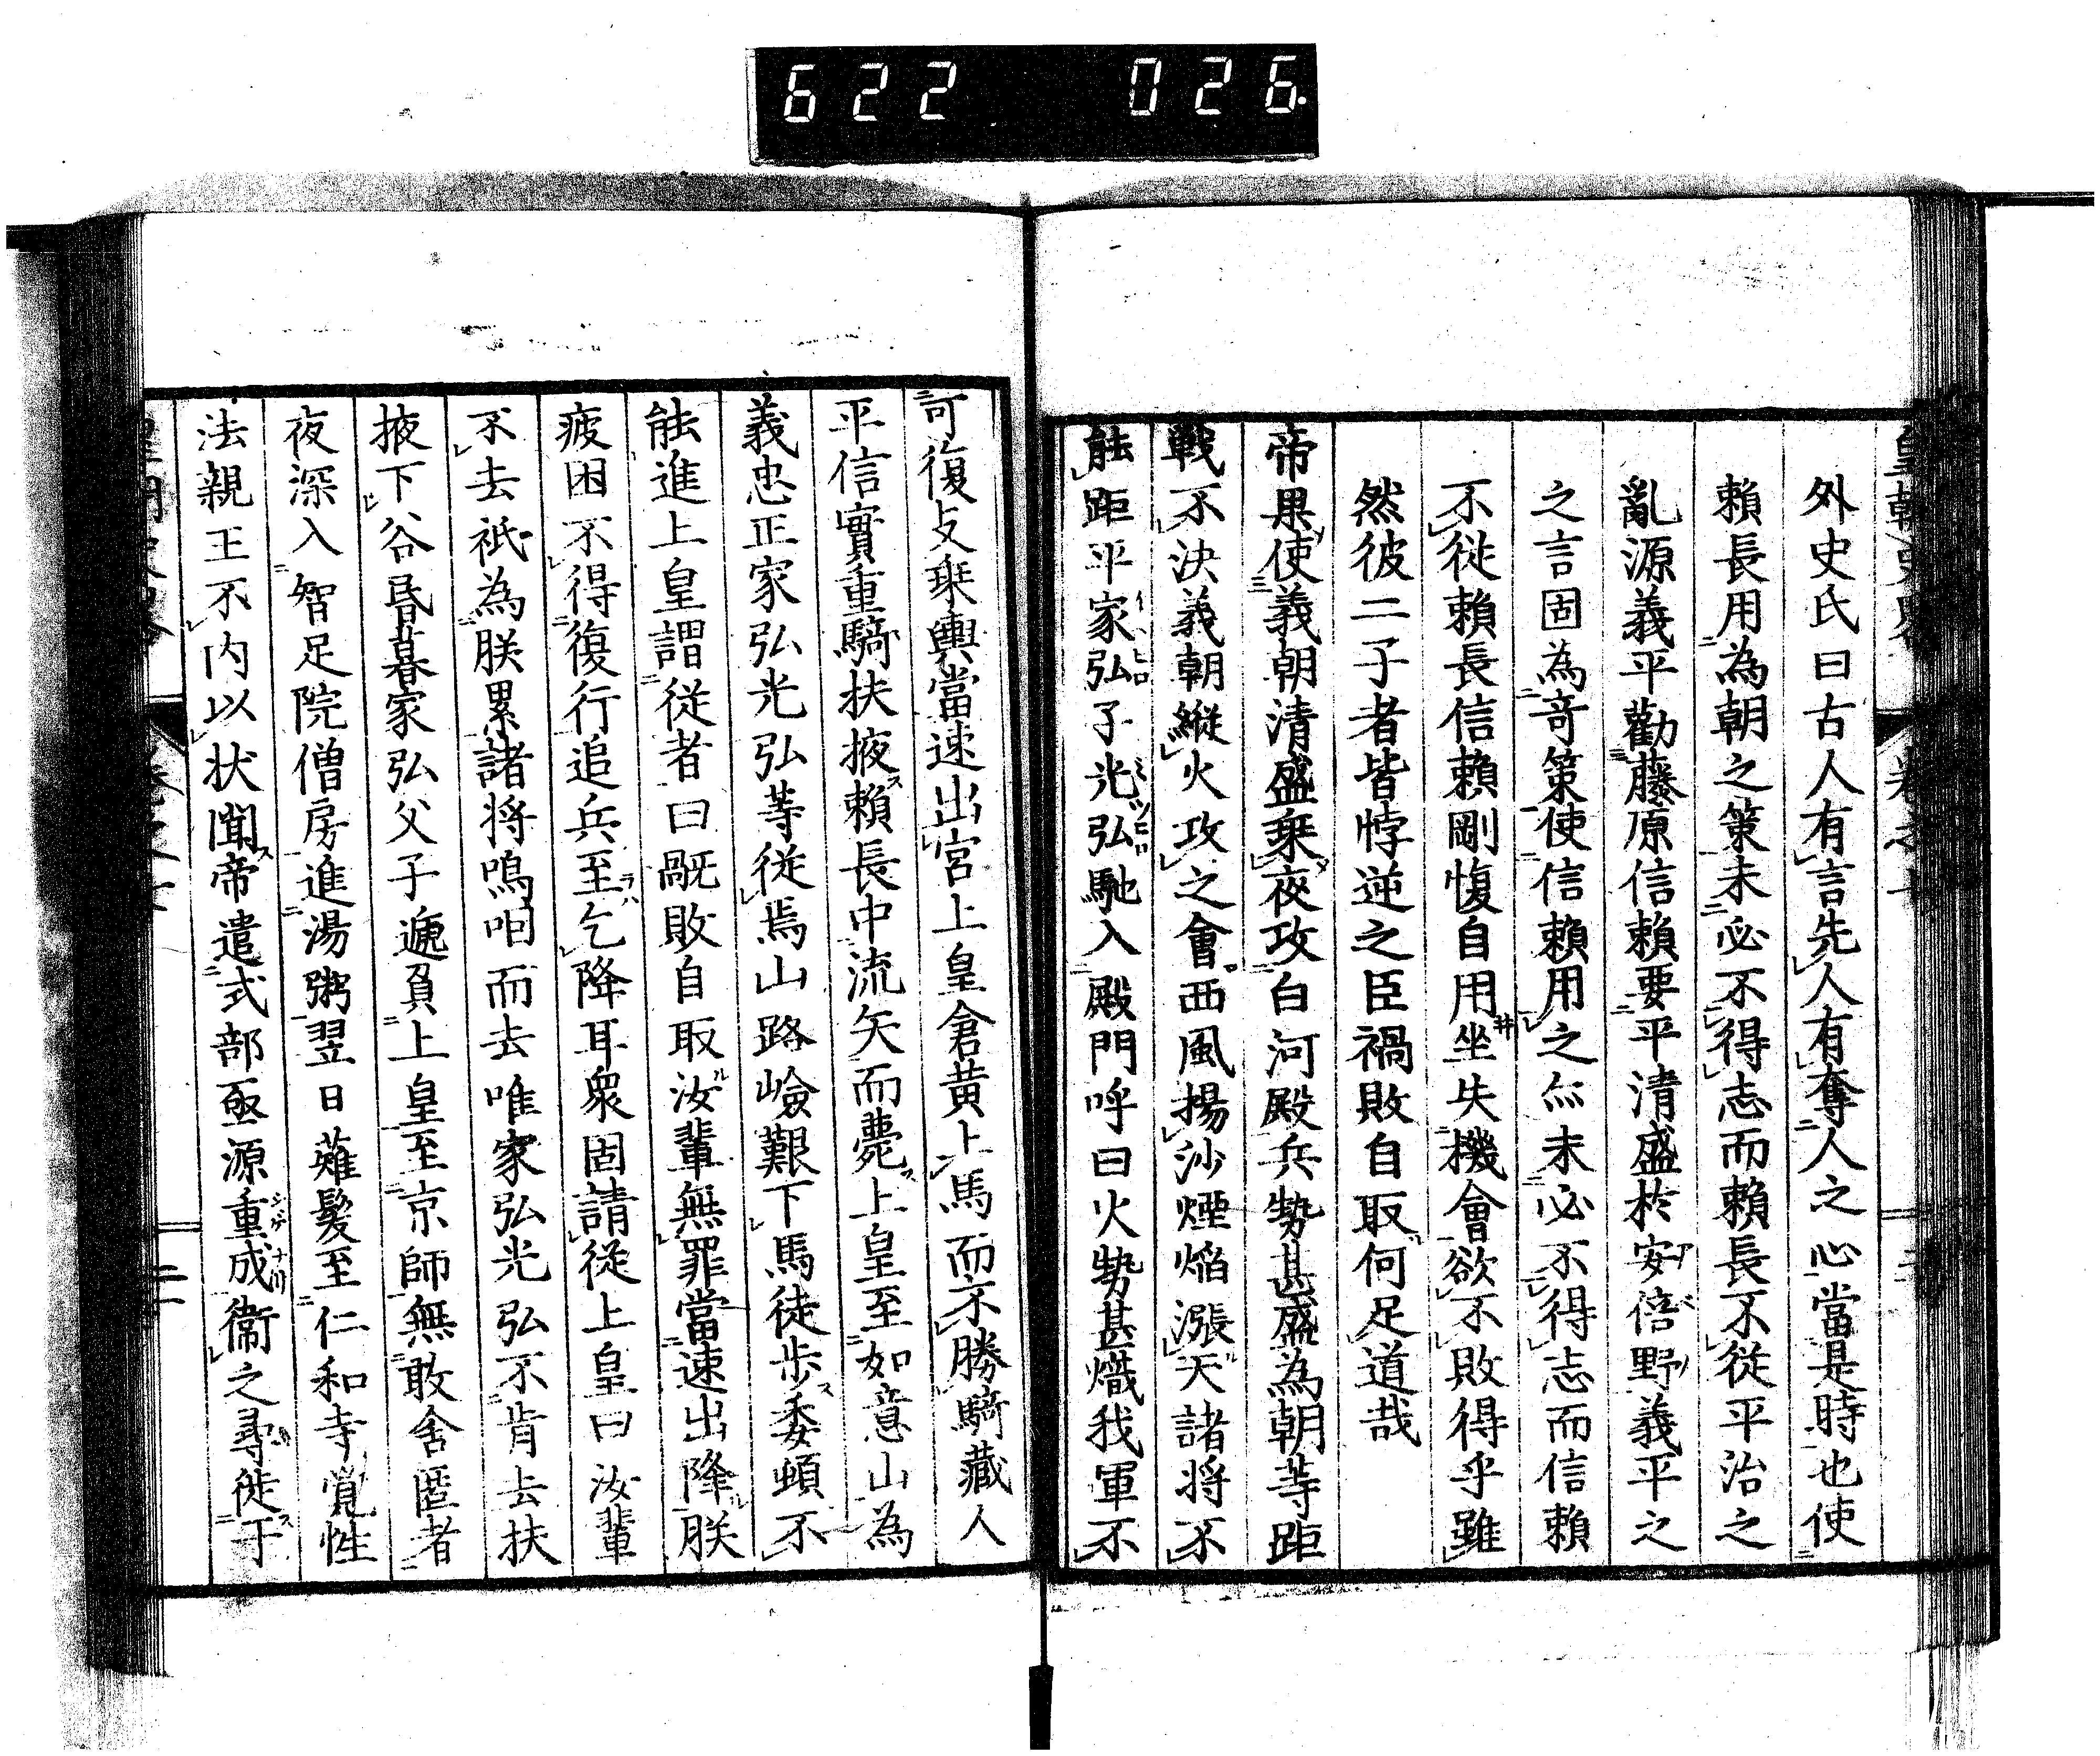 622 026
外史氏曰古人有言先人有奪人之心當是時也使
賴長用為朝之策未必不得志而賴長不從平治之
亂源義平勸藤原信賴要平清盛於安倍野義平之
之言固為奇策使信賴用之亦未必不得志而信賴
不從賴長信賴剛愎自用坐失機會欲不敗得乎雖
然彼二子者皆悖逆之臣禍敗自取何足道哉
帝果使義朝清盛乘夜攻白河殿兵勢甚盛為朝等距
戰不決義朝縱火攻之會西風揚沙煙焰漲天諸将不
能距平家弘子光弘馳入殿門呼曰火勢甚熾我軍不
可復支乘輿當速出宮上皇倉黄上馬而不勝騎藏人
平信實重騎扶掖賴長中流矢而薨上皇至如意山為
義忠正家弘光弘等從焉山路嶮艱下馬徒歩委頓不
能進上皇謂從者曰敗自取汝輩無罪當速出降朕
疲困不得復行追兵至乞降耳衆固請從上皇曰汝輩
不去祇為朕累諸将嗚咽而去唯家弘光弘不肯去扶
掖下谷昏暮家弘父子遞負上皇至京師無敢舍匿者
夜深入智足院僧房進湯粥翌日薙髪至仁和寺覚性
法親王不内以状聞帝遣式部丞源重成衞之尋徙于